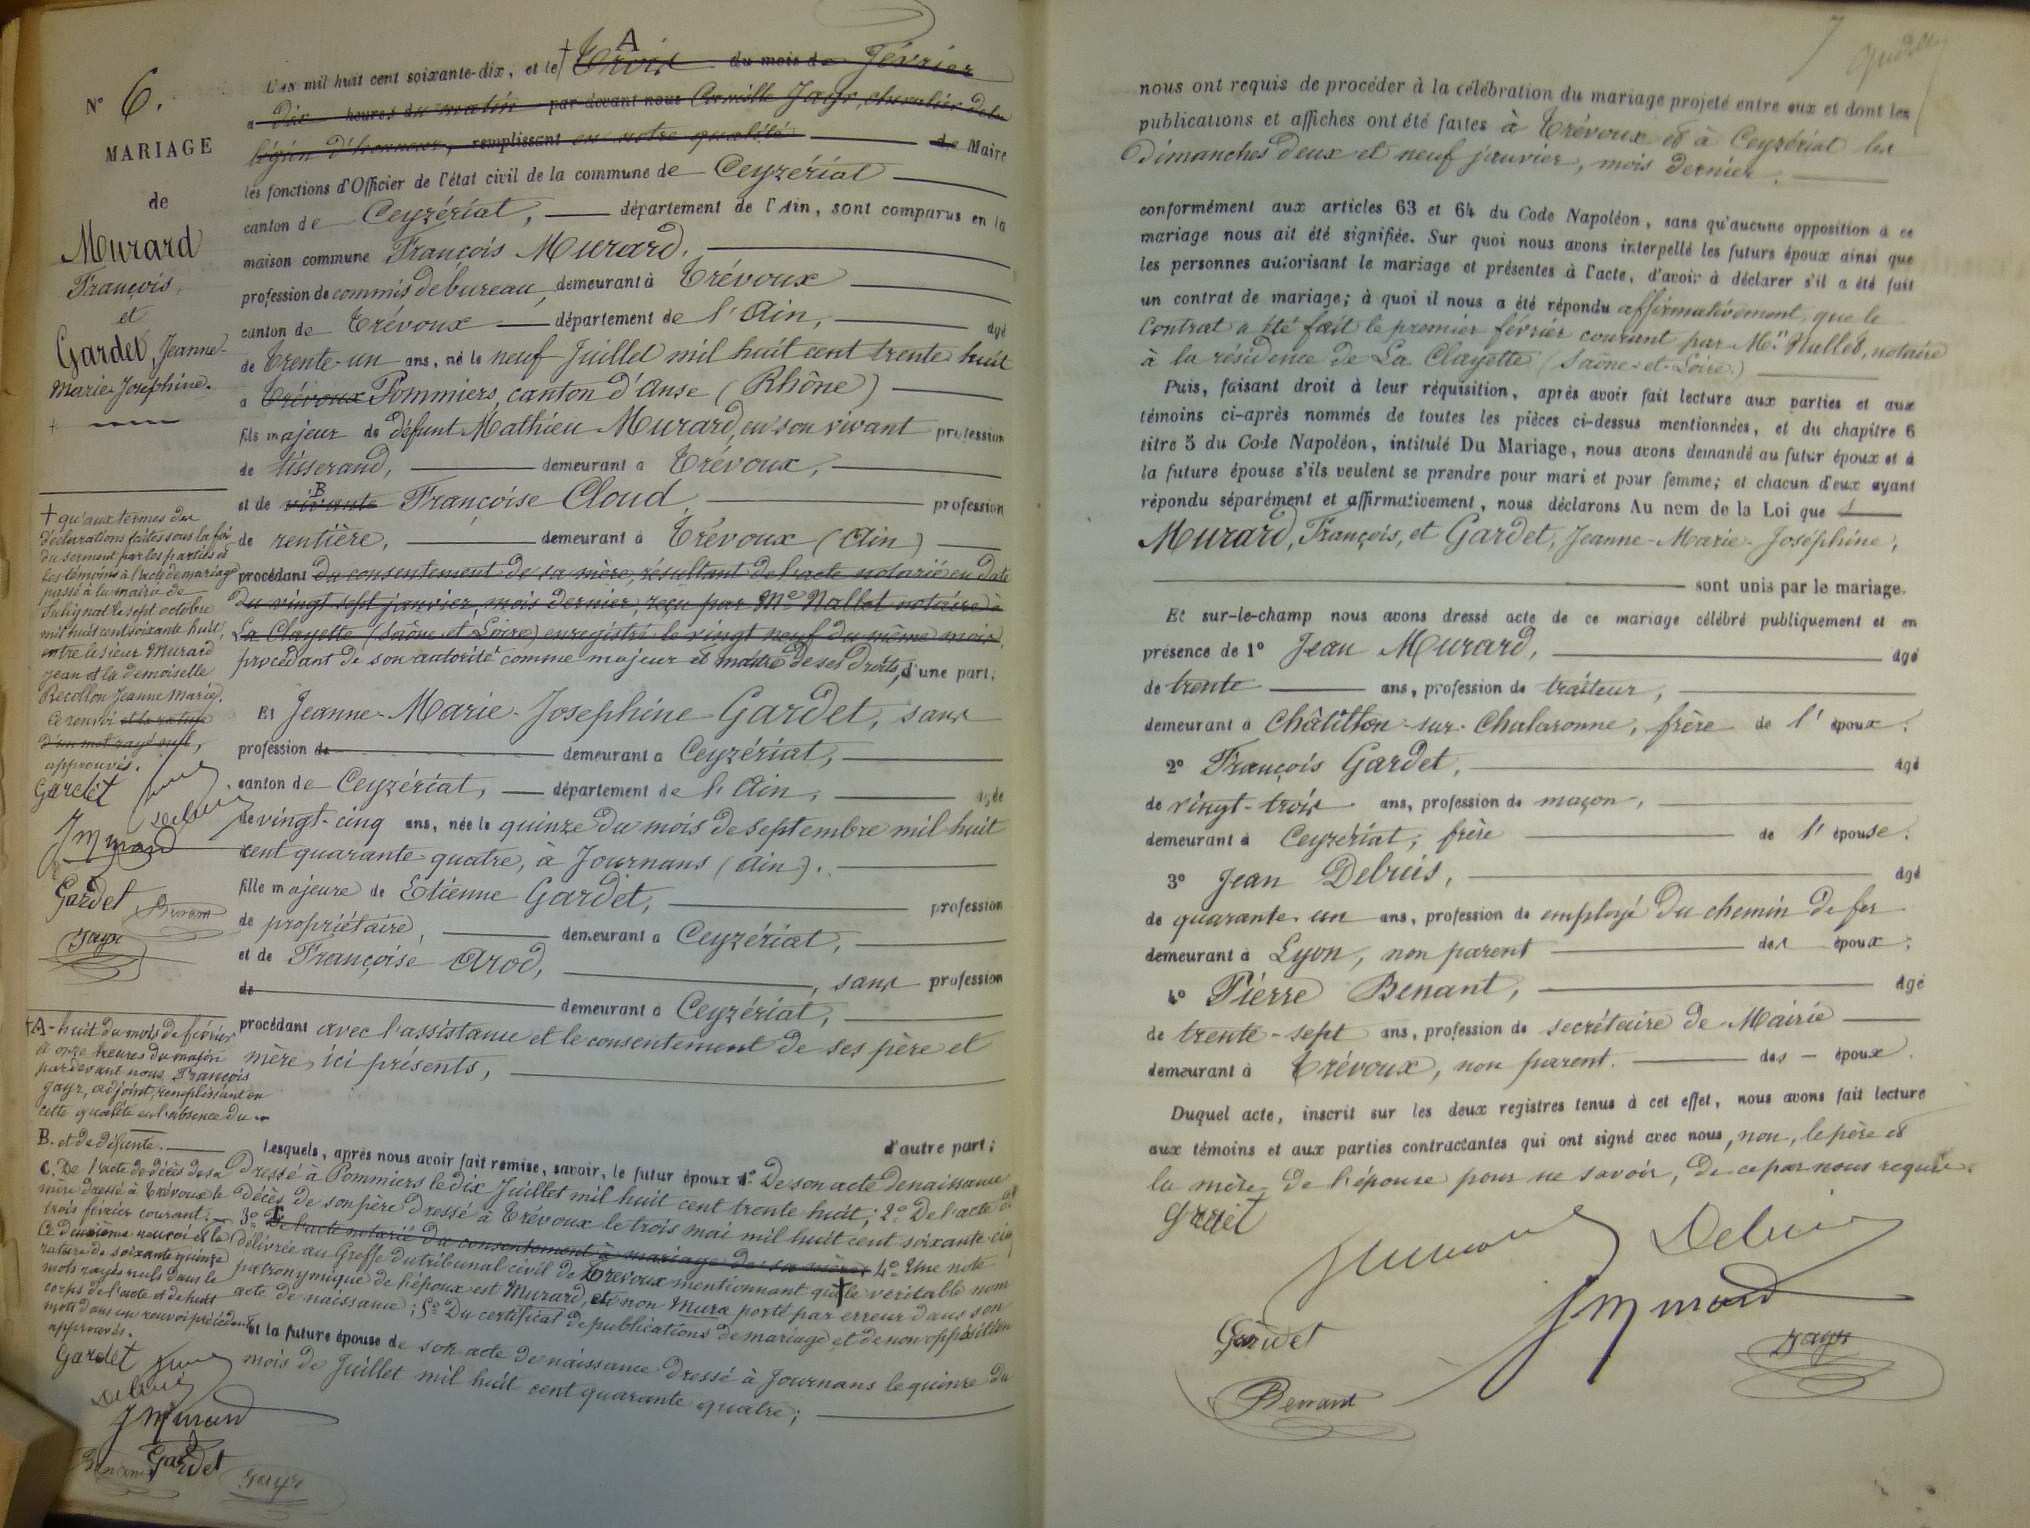 N° 6.
MARIAGE
de
Murard
François,
et
Gardet, Jeanne-
Marie-Josephine.
+ qu'aux termes des
déclarations faites sous la foi
du serment par les parties et
les témoins à l'acte de mariage
passé à la mairie de
le sept octobre
mil huit cent soixante huit,
entre le sieur Murard
Jean et la demoiselle
Récollon Jeanne Marie.
Ce renvoi et la rature
d'un mot rayé nul,
approuvés.
Gardet
Debuis
JMurard
Gardet Benant
Jayr
A
L'an mil huit cent soixante-dix, et le trois du mois de février
a dix heures du matin par devant nous Camille Jayr, chevalier de la
légion d'honneur, remplissant en notre qualité de Maire
les fonctions d'Officier de l'état civil de la commune de Ceyzériat
canton de Ceyzériat, département de l'Ain, sont comparus en la
maison commune François Murard,
profession de commis de bureau, demeurant à Trévoux
canton de Trévoux département de l'Ain, agé
de trente-un ans, né le neuf Juillet mil huit cent trente huit
a Trévoux Pommiers, canton d'Anse (Rhône)
fils majeur de défunt Mathieu Murard, en son vivant profession
de tisserand, demeurant a Trévoux,
B
et de vivante Françoise Cloud, profession
de rentière, demeurant à Trévoux (Ain)
procédant du consentement de sa mère, résultant de l'acte notarié en date
du vingt sept janvier, mois dernier, reçu par Me Nallet notaire à
La Clayette (Saône et Loire) enregistré le vingt neuf du même mois,
procédant de son autorité comme majeur et maître de ses droits, d'une part;
Et Jeanne-Marie-Josephine Gardet, sans
profession de demeurant a Ceyzériat,
canton de Ceyzériat, département de l'Ain, agée
de vingt-cinq ans, née le quinze du mois de septembre mil huit
cent quarante quatre, à Journans (Ain).
fille majeure de Etienne Gardet, profession
de propriétaire, demeurant a Ceyzériat,
et de Françoise Arod, sans profession
de demeurant à Ceyzériat,
procédant avec l'assistance et le consentement de ses père et
mère, ici présents,
d'autre part;
Lesquels, après nous avoir fait remise, savoir, le futur époux 1° De son acte de naissance
dressé à Pommiers le dix Juillet mil huit cent trente huit; 2° De l'acte de
décès de son père dressé à Trévoux le trois mai mil huit cent soixante-cinq
3° De l'acte notarié du consentement à mariage de sa mère; 4° Une note
délivrée au Greffe du tribunal civil de Trévoux mentionnant que + le véritable nom
patronymique de l'époux est Murard, et non Mura porté par erreur dans son
acte de naissance; 5° Du certificat de publications de mariage et de non opposition
et la future épouse de son acte de naissance dressé à Journans le quinze du
mois de Juillet mil huit cent quarante quatre;
+A - huit du mois de février
à onze heures du matin
par devant nous François
Jayr, adjoint, remplissant en
cette qualité en l'absence du
B. et de défunte.
C. De l'acte de décès de sa
mère dressé à Trévoux le
trois février courant.
Ce deuxième renvoi et la
rature de soixante quinze
mots rayés nuls dans le
corps de l'acte et de huit
mots dans un renvoi précédent
approuvés.
Gardet
Debuis
JMurard
Benant Gardet Jayr
7
nous ont requis de procéder à la célébration du mariage projeté entre eux et dont les
publications et affiches ont été faites à Trévoux et à Ceyzériat les
Dimanches deux et neuf janvier, mois dernier,
conformément aux articles 63 et 64 du Code Napoléon, sans qu'aucune opposition à ce
mariage nous ait été signifiée. Sur quoi nous avons interpellé les futurs époux ainsi que
les personnes autorisant le mariage et présentes à l'acte, d'avoir à déclarer s'il a été fait
un contrat de mariage; à quoi il nous a été répondu affirmativement, que le
Contrat a été fait le premier février courant par Me Nallet, notaire
à la résidence de La Clayette (Saône-et-Loire.)
Puis, faisant droit à leur réquisition, après avoir fait lecture aux parties et aux
témoins ci-après nommés de toutes les pièces ci-dessus mentionnées, et du chapitre 6
titre 5 du Code Napoléon, intitulé Du Mariage, nous avons demandé au futur époux et à
la future épouse s'ils veulent se prendre pour mari et pour femme; et chacun d'eux ayant
répondu séparément et affirmativement, nous déclarons Au nom de la Loi que
Murard, François, et Gardet, Jeanne-Marie-Joséphine,
sont unis par le mariage.
Et sur-le-champ nous avons dressé acte de ce mariage célébré publiquement et en
présence de 1° Jean Murard, agé
de trente ans, profession de traiteur,
demeurant à Châtillon-sur-Chalaronne, frère de l'époux.
2° François Gardet, agé
de vingt-trois ans, profession de maçon,
demeurant à Ceyzériat, frère de l'épouse.
3° Jean Debuis, agé
de quarante-un ans, profession de employé du chemin de fer
demeurant à Lyon, non parent des époux;
4° Pierre Benant, agé
de trente-sept ans, profession de secrétaire de Mairie
demeurant à Trévoux, non parent. des époux.
Duquel acte, inscrit sur les deux registres tenus à cet effet, nous avons fait lecture
aux témoins et aux parties contractantes qui ont signé avec nous, non, le père et
la mère de l'épouse pour ne savoir, de ce par nous requis.
Gardet
Debuis
JMurard
Gardet
Jayr
Benant